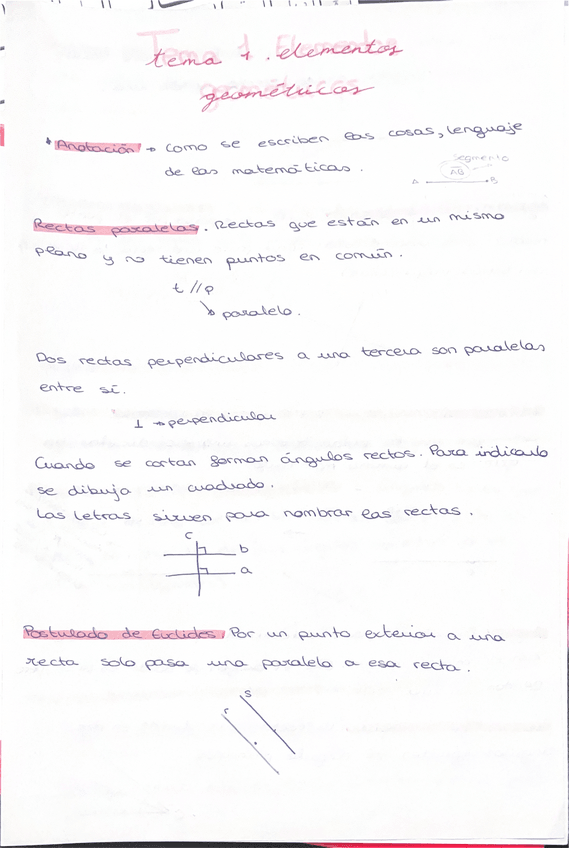 tema 1. elementos
geométricos
* Anotación → como se escriben las cosas, lenguaje
de las matemáticas.
segmento
AB
A B
Rectas paralelas. Rectas que están en un mismo
plano y no tienen puntos en común.
t // p
↘ paralelo.
Dos rectas perpendiculares a una tercera son paralelas
entre sí.
⊥ → perpendicular
Cuando se cortan forman ángulos rectos. Para indicarlo
se dibuja un cuadrado.
Las letras sirven para nombrar las rectas.
c
b
a
Postulado de Euclides. Por un punto exterior a una
recta solo pasa una paralela a esa recta.
s
r